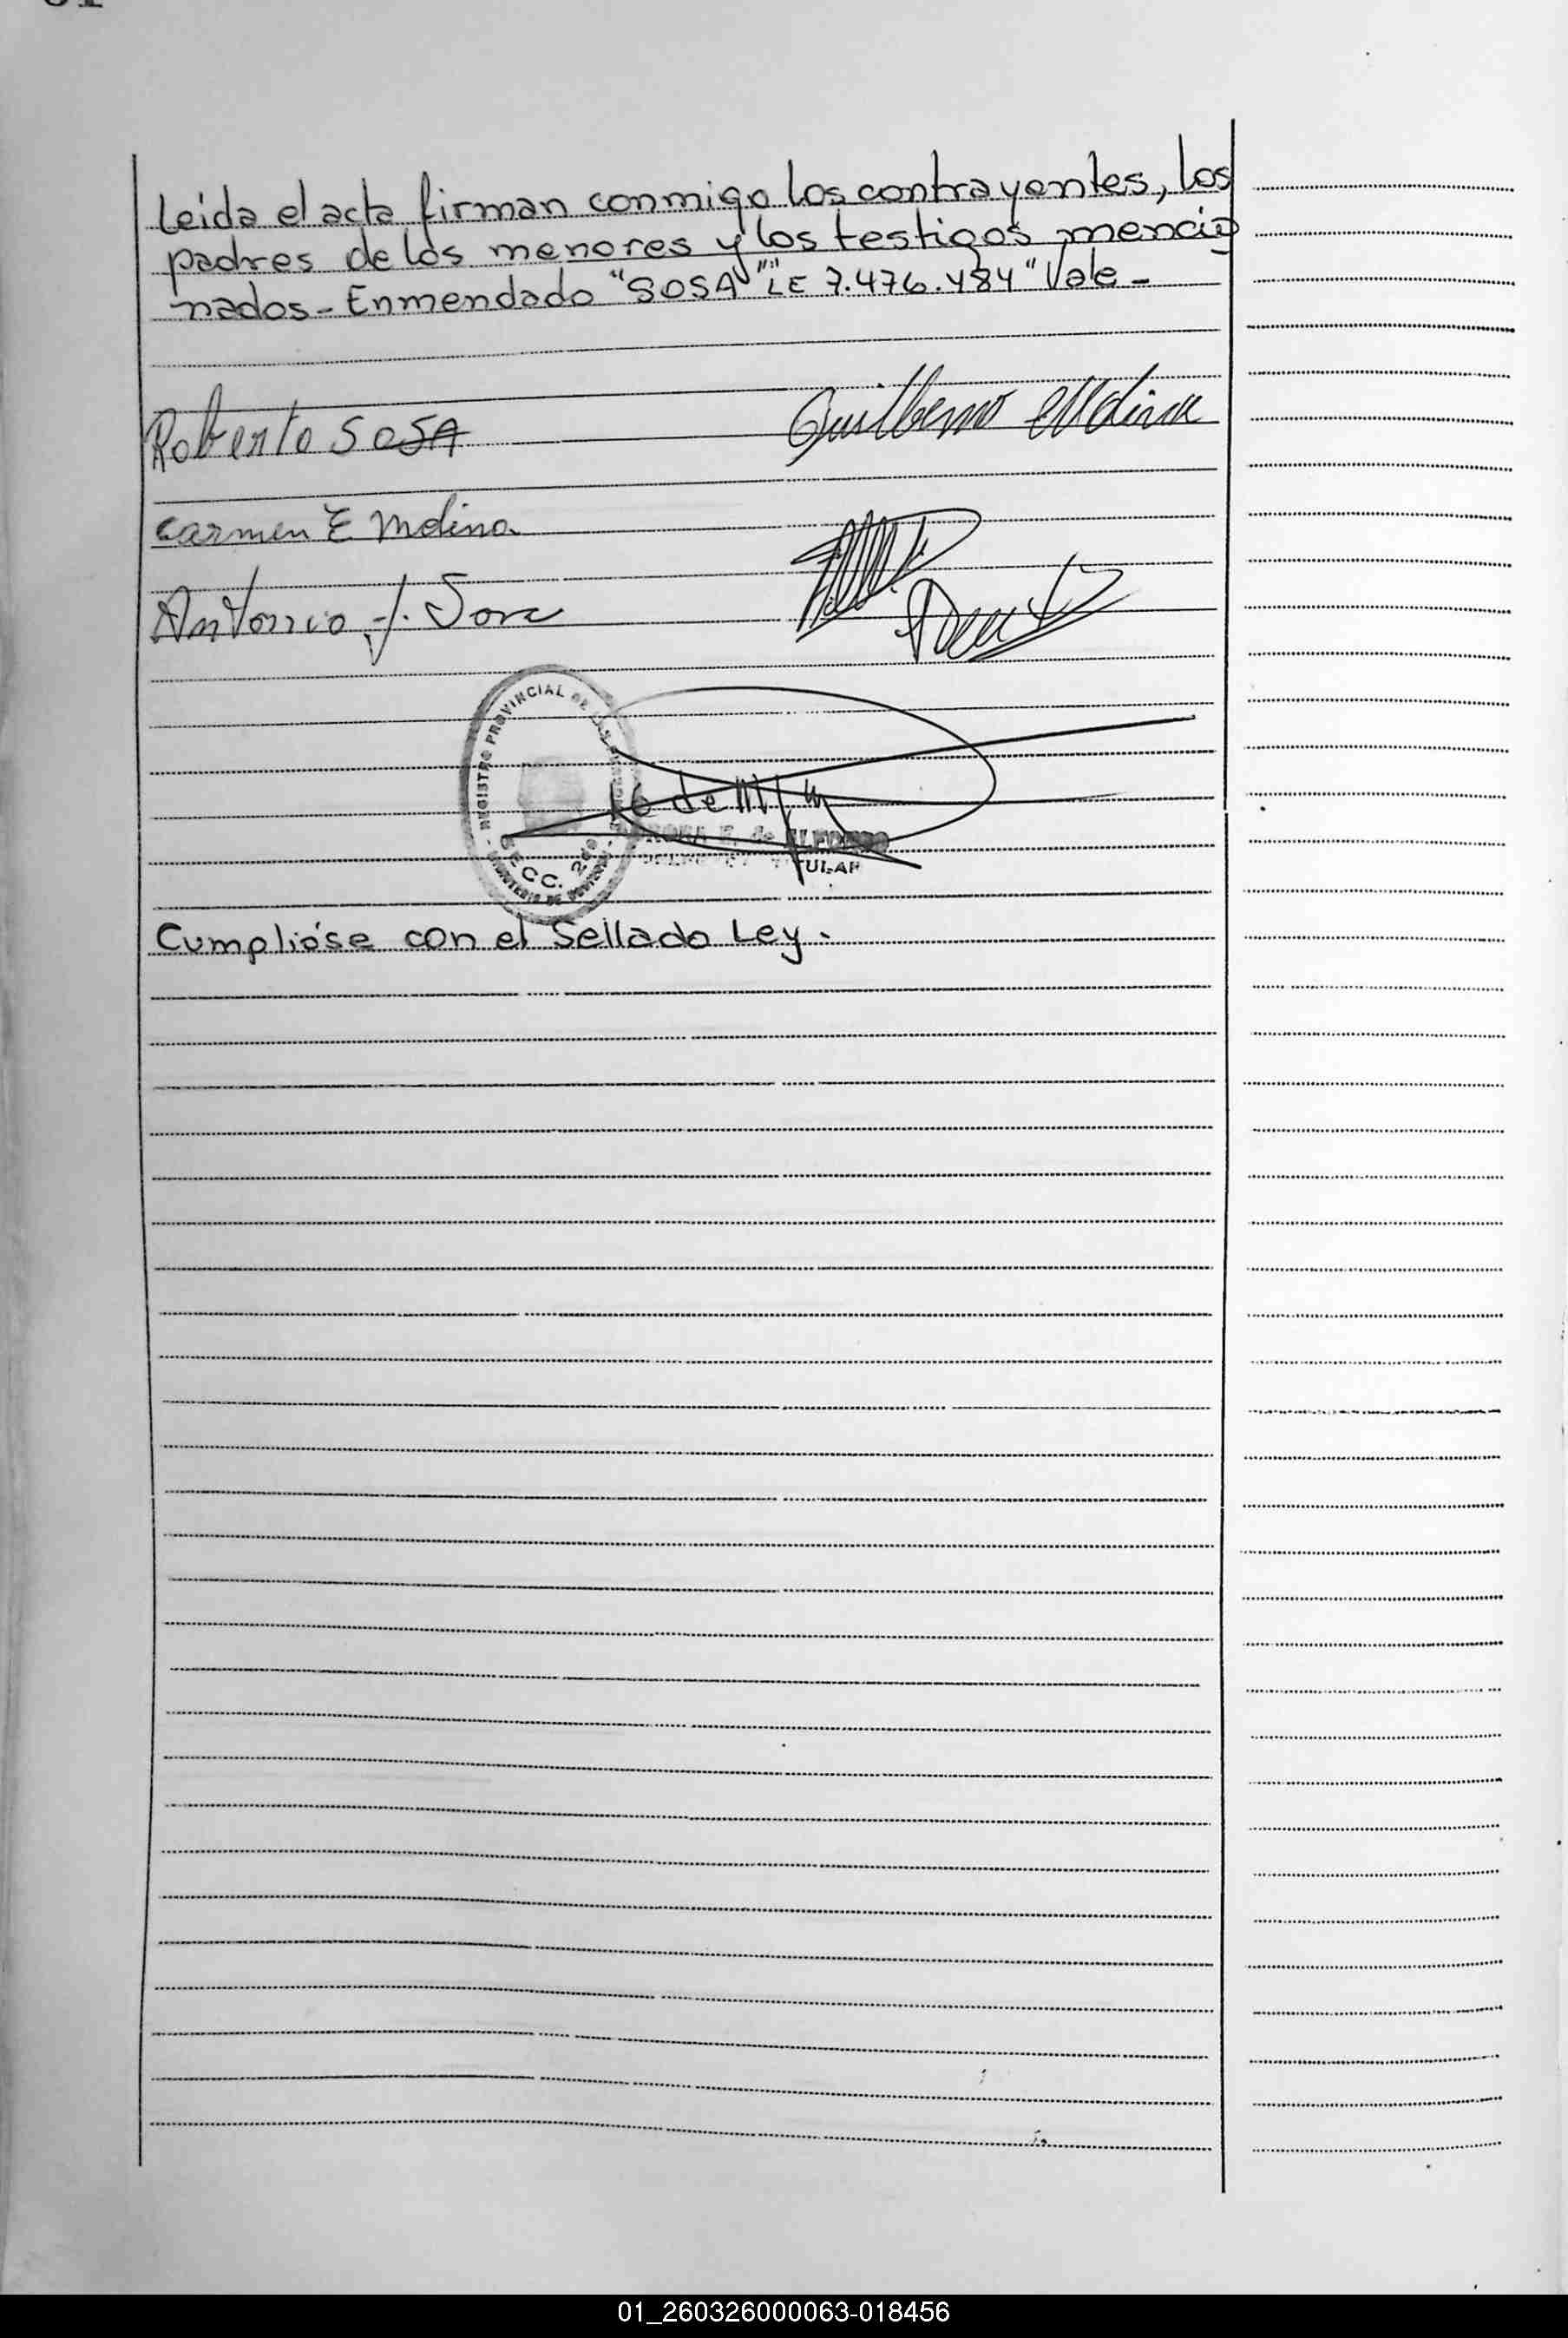 Leida el acta firman conmigo los contrayentes, los
padres de los menores y los testigos mencio
nados - Enmendado "SOSA" "LE 7.476.484" Vale -
Roberto SOSA
Guillermo Molina
Carmen E Molina
Antonio J. Sosa
REGISTRO PROVINCIAL DE LAS
SECC.
TITULAR
Cumplióse con el Sellado Ley.
01_260326000063-018456